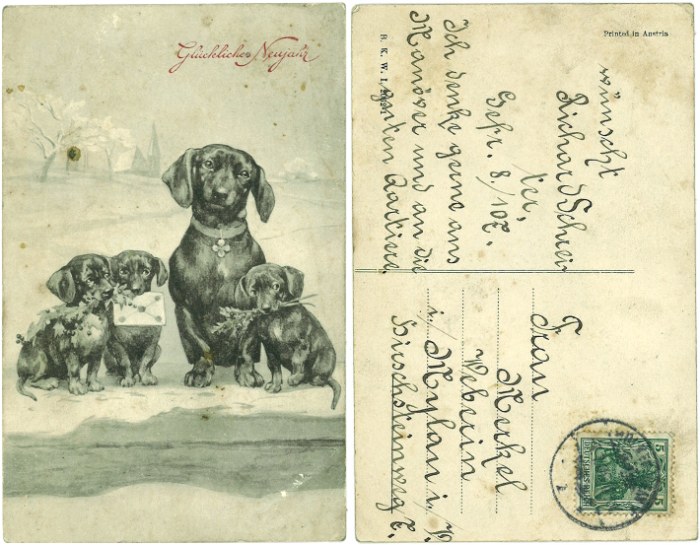 Glückliches Neujahr
Printed in Austria
B. K. W. I.
wünscht
Richard Schrei
ter,
Gefr. 8./107.
Ich denke gerne ans
Manöver und an die
guten Quartiere.
Frau
Merkel
Webrin
i./Mylau i./V.
Hirschsteinweg 7.
5
5